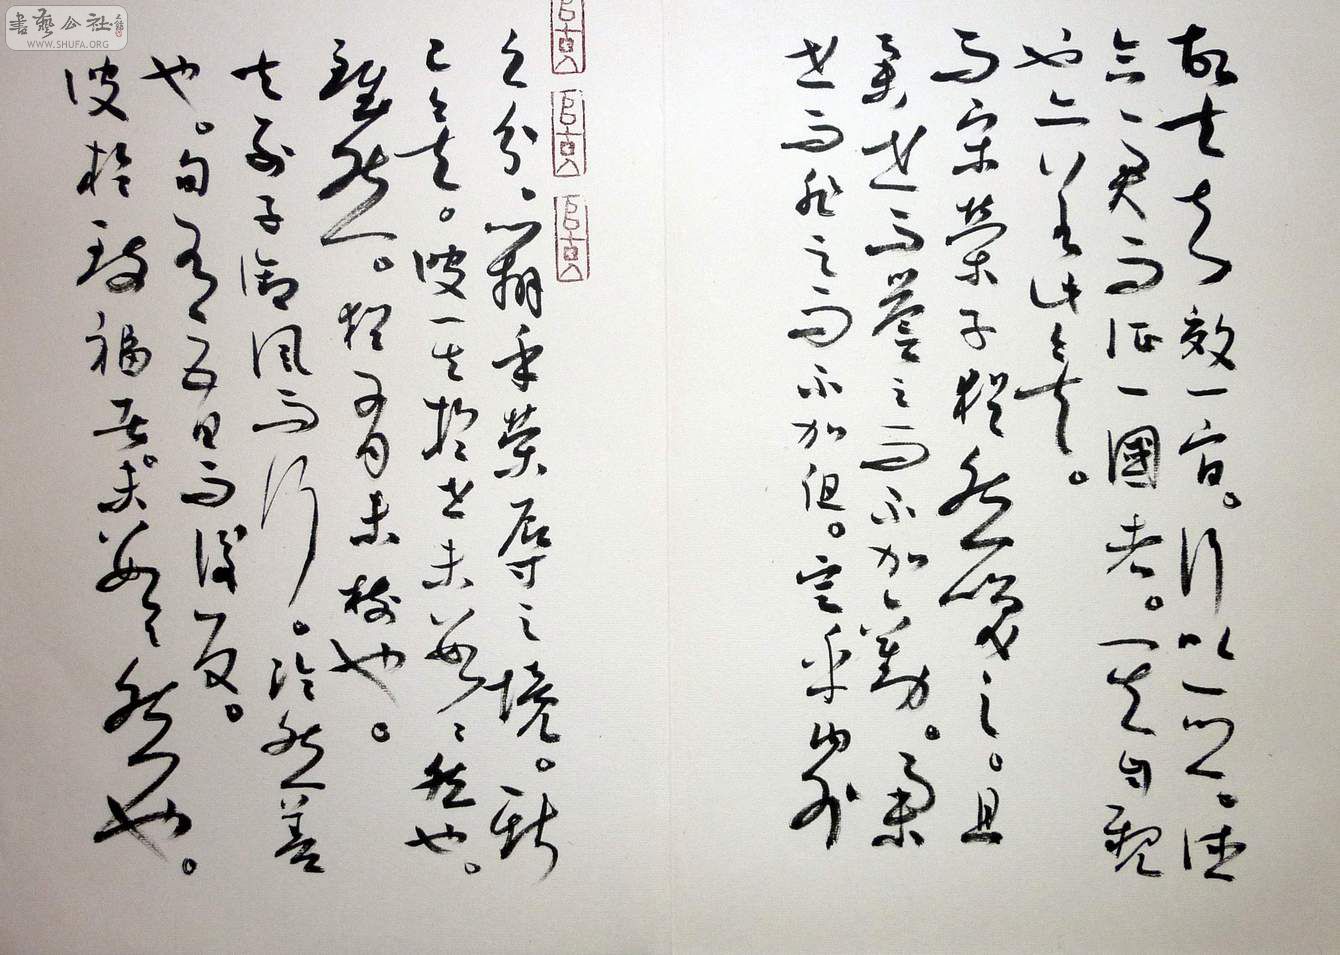 書藝公社
WWW.SHUFA.ORG
故夫知效一官。行比一鄉。德
合一君而征一國者。其自視
也亦若此矣。
而宋榮子猶然笑之。且
舉世而譽之而不加勸。舉
世而非之而不加沮。定乎內外
之分。辯乎榮辱之境。斯
已矣。彼其於世未數々然也。
雖然。猶有未樹也。
夫列子御風而行。泠然善
也。旬有五日而後反。
彼於致福者。未數々然也。